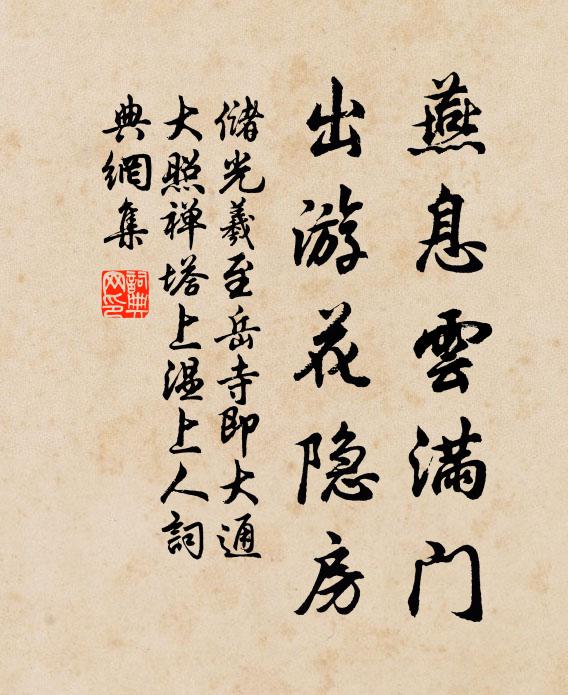 燕息雲滿门
出游花隐房
儲光羲至岳寺即大通
大照禅塔上温上人詞
典網集
詞典
网印